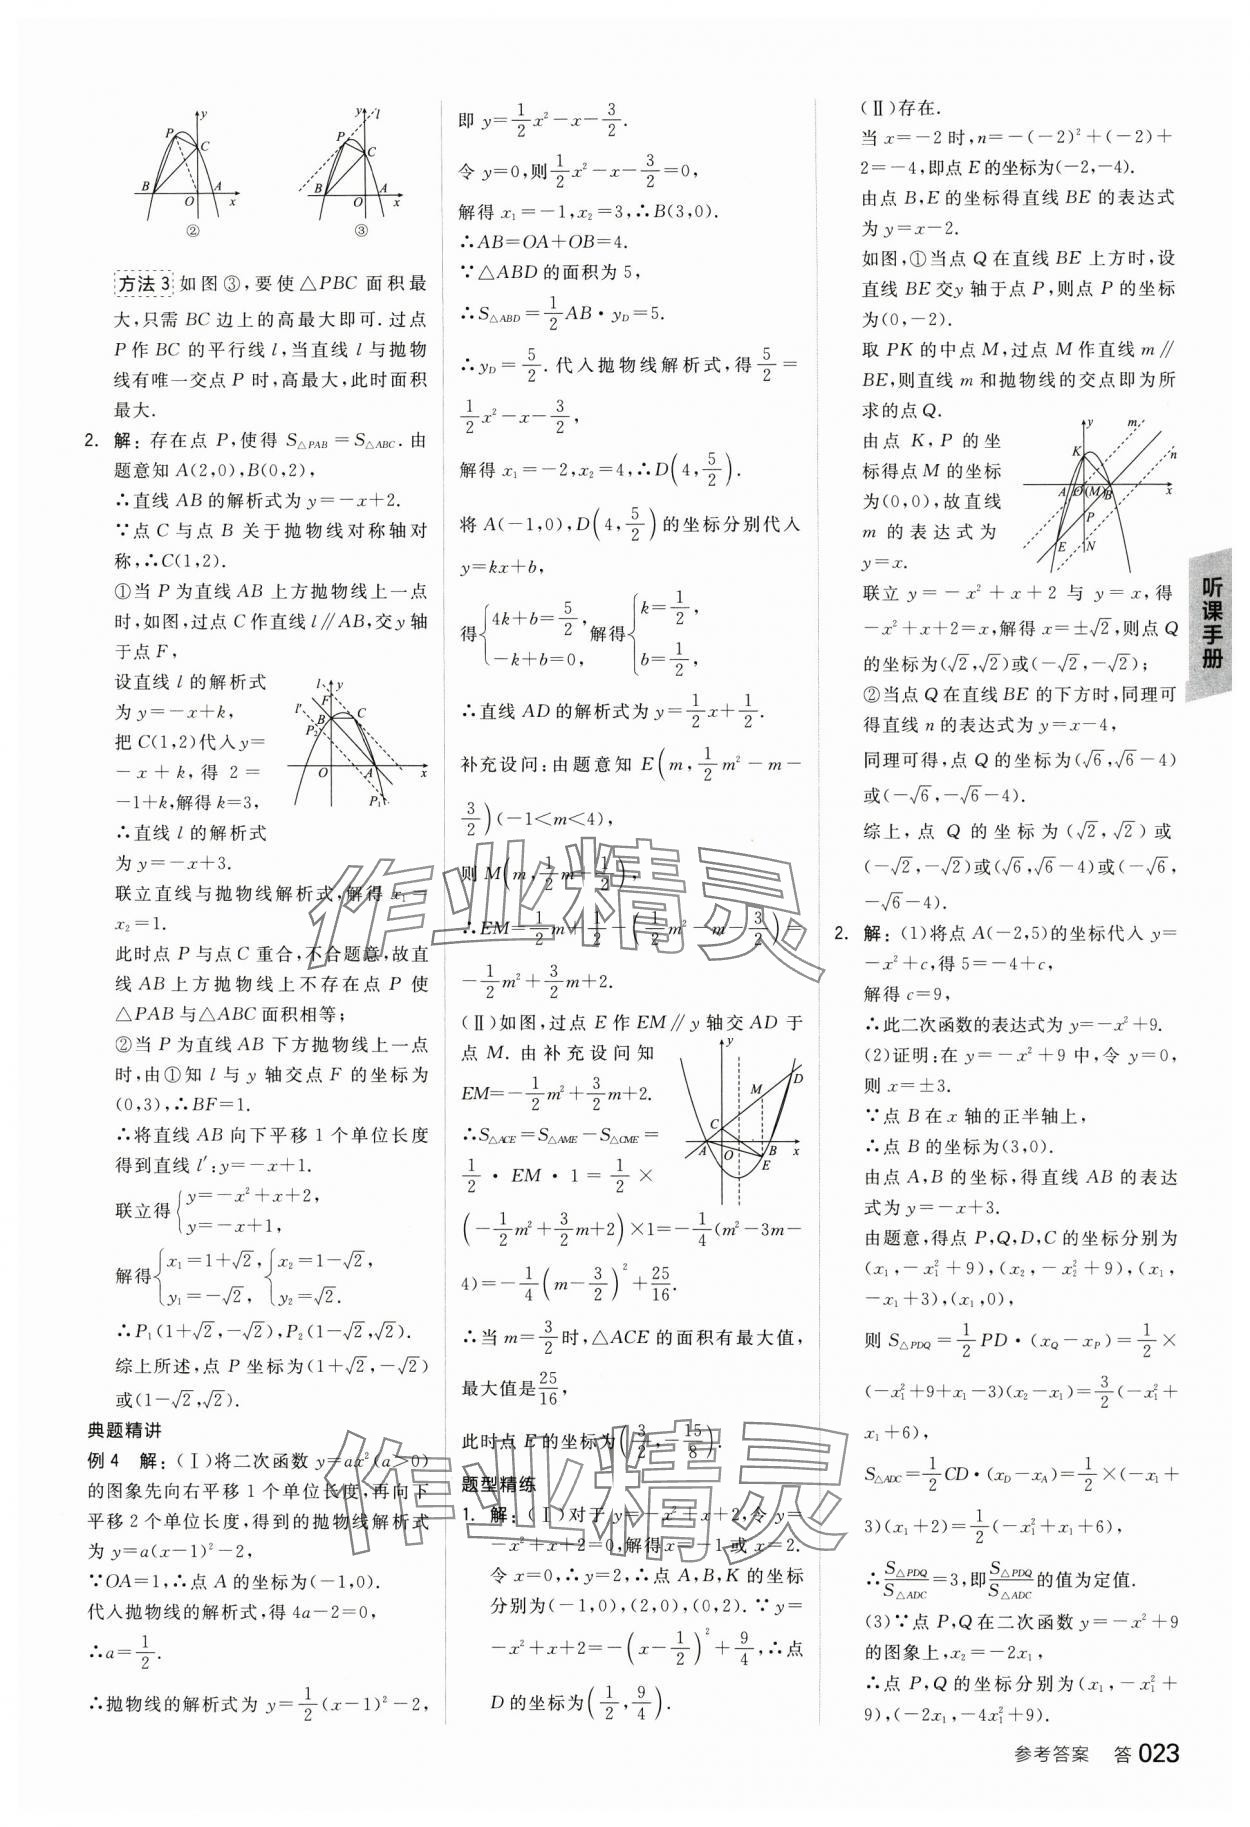 ②
③
方法3 如图③,要使△PBC 面积最
大,只需 BC 边上的高最大即可. 过点
P 作 BC 的平行线 l,当直线 l 与抛物
线有唯一交点 P 时,高最大,此时面积
最大.
2. 解: 存在点 P,使得 S△PAB=S△ABC. 由
题意知 A(2,0),B(0,2),
∴直线 AB 的解析式为 y=-x+2.
∵点 C 与点 B 关于抛物线对称轴对
称,∴C(1,2).
①当 P 为直线 AB 上方抛物线上一点
时,如图,过点 C 作直线 l∥AB,交 y 轴
于点 F,
设直线 l 的解析式
为 y=-x+k,
把 C(1,2)代入 y=
-x+k,得 2=
-1+k,解得 k=3,
∴直线 l 的解析式
为 y=-x+3.
联立直线与抛物线解析式,解得 x₁=
x₂=1.
此时点 P 与点 C 重合,不合题意,故直
线 AB 上方抛物线上不存在点 P 使
△PAB 与△ABC 面积相等;
②当 P 为直线 AB 下方抛物线上一点
时,由①知 l 与 y 轴交点 F 的坐标为
(0,3),∴BF=1.
∴将直线 AB 向下平移 1 个单位长度
得到直线 l′:y=-x+1.
联立得{y=-x²+x+2,
y=-x+1,
解得{x₁=1+√2, {x₂=1-√2,
y₁=-√2, y₂=√2.
∴P₁(1+√2,-√2),P₂(1-√2,√2).
综上所述,点 P 坐标为(1+√2,-√2)
或(1-√2,√2).
典题精讲
例 4 解:(Ⅰ)将二次函数 y=ax²(a>0)
的图象先向右平移 1 个单位长度,再向下
平移 2 个单位长度,得到的抛物线解析式
为 y=a(x-1)²-2,
∵OA=1,∴点 A 的坐标为(-1,0).
代入抛物线的解析式,得 4a-2=0,
∴a=1/2.
∴抛物线的解析式为 y=1/2(x-1)²-2,
即 y=1/2x²-x-3/2.
令 y=0,则1/2x²-x-3/2=0,
解得 x₁=-1,x₂=3,∴B(3,0).
∴AB=OA+OB=4.
∵△ABD 的面积为 5,
∴S△ABD=1/2AB·yD=5.
∴yD=5/2. 代入抛物线解析式,得5/2=
1/2x²-x-3/2,
解得 x₁=-2,x₂=4,∴D(4,5/2).
将 A(-1,0),D(4,5/2)的坐标分别代入
y=kx+b,
得{4k+b=5/2, 解得{k=1/2,
-k+b=0, b=1/2,
∴直线 AD 的解析式为 y=1/2x+1/2.
补充设问:由题意知 E(m,1/2m²-m-
3/2)(-1<m<4),
则 M(m,1/2m+1/2),
∴EM=1/2m+1/2-(1/2m²-m-3/2)=
-1/2m²+3/2m+2.
(Ⅱ)如图,过点 E 作 EM∥y 轴交 AD 于
点 M. 由补充设问知
EM=-1/2m²+3/2m+2.
∴S△ACE=S△AME-S△CME=
1/2·EM·1=1/2×
(-1/2m²+3/2m+2)×1=-1/4(m²-3m-
4)=-1/4(m-3/2)²+25/16.
∴当 m=3/2时,△ACE 的面积有最大值,
最大值是25/16,
此时点 E 的坐标为(3/2,-15/8).
题型精练
1. 解:(Ⅰ)对于 y=-x²+x+2,令 y=
-x²+x+2=0,解得 x=-1 或 x=2.
令 x=0,∴y=2,∴点 A,B,K 的坐标
分别为(-1,0),(2,0),(0,2). ∵y=
-x²+x+2=-(x-1/2)²+9/4,∴点
D 的坐标为(1/2,9/4).
(Ⅱ)存在.
当 x=-2 时,n=-(-2)²+(-2)+
2=-4,即点 E 的坐标为(-2,-4).
由点 B,E 的坐标得直线 BE 的表达式
为 y=x-2.
如图,①当点 Q 在直线 BE 上方时,设
直线 BE 交 y 轴于点 P,则点 P 的坐标
为(0,-2).
取 PK 的中点 M,过点 M 作直线 m∥
BE,则直线 m 和抛物线的交点即为所
求的点 Q.
由点 K,P 的坐
标得点 M 的坐标
为(0,0),故直线
m 的表达式为
y=x.
联立 y=-x²+x+2 与 y=x,得
-x²+x+2=x,解得 x=±√2,则点 Q
的坐标为(√2,√2)或(-√2,-√2);
②当点 Q 在直线 BE 的下方时,同理可
得直线 n 的表达式为 y=x-4,
同理可得,点 Q 的坐标为(√6,√6-4)
或(-√6,-√6-4).
综上,点 Q 的坐标为(√2,√2)或
(-√2,-√2)或(√6,√6-4)或(-√6,
-√6-4).
2. 解:(1)将点 A(-2,5)的坐标代入 y=
-x²+c,得 5=-4+c,
解得 c=9,
∴此二次函数的表达式为 y=-x²+9.
(2)证明:在 y=-x²+9 中,令 y=0,
则 x=±3.
∵点 B 在 x 轴的正半轴上,
∴点 B 的坐标为(3,0).
由点 A,B 的坐标,得直线 AB 的表达
式为 y=-x+3.
由题意,得点 P,Q,D,C 的坐标分别为
(x₁,-x₁²+9),(x₂,-x₂²+9),(x₁,
-x₁+3),(x₁,0),
则 S△PDQ=1/2PD·(xQ-xP)=1/2×
(-x₁²+9+x₁-3)(x₂-x₁)=3/2(-x₁²+
x₁+6),
S△ADC=1/2CD·(xD-xA)=1/2×(-x₁+
3)(x₁+2)=1/2(-x₁²+x₁+6),
∴S△PDQ/S△ADC=3,即S△PDQ/S△ADC的值为定值.
(3)∵点 P,Q 在二次函数 y=-x²+9
的图象上,x₂=-2x₁,
∴点 P,Q 的坐标分别为(x₁,-x₁²+
9),(-2x₁,-4x₁²+9).
听课手册
作业精灵
作业精灵
参考答案 答 023